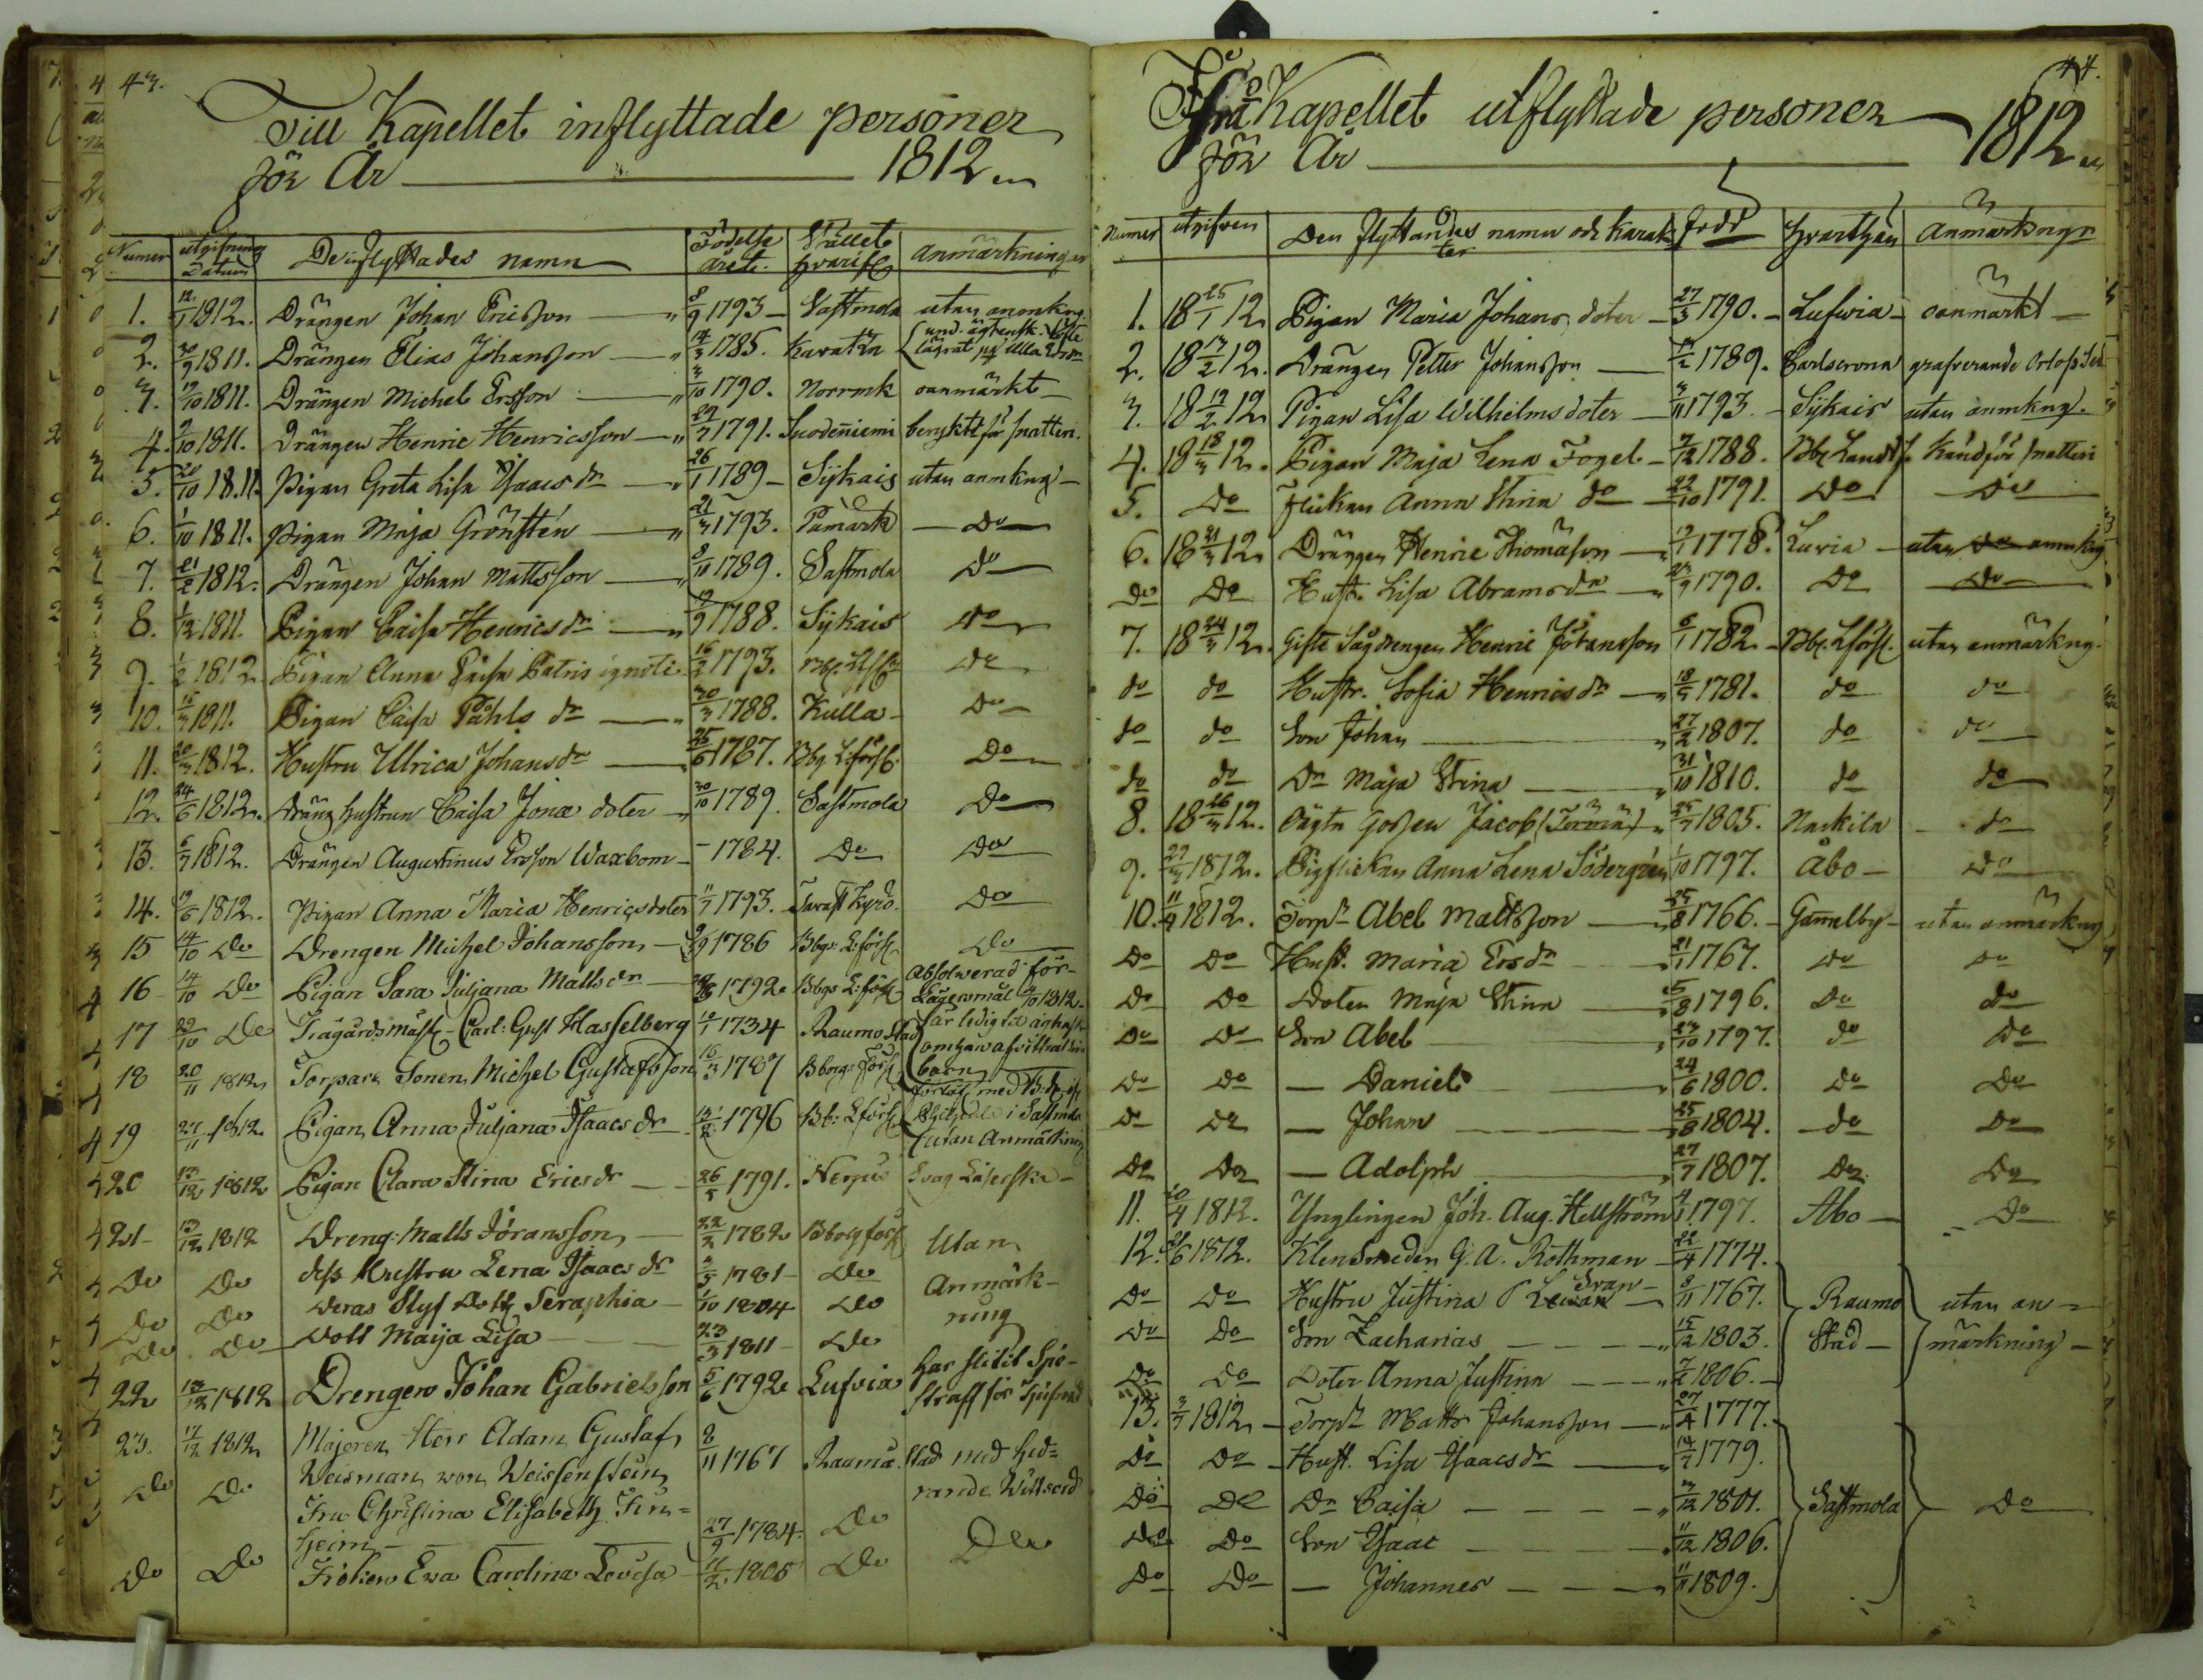 43.
Till Kapellet inflyttade personer
för År 1812
Numer utgifnings Datum De inflyttades namn Födelse året. Stället hvarifr anmärkningar
1. 12/1 1812. Drängen Johan Ericsson 8/9 1793 Sastmola utan anmkng.
2. 30/9 1811. Drängen Elias Johansson 14/3 1785. und. ägtensk. löfte lägrat pig Ulla
3. 19/10 1811. Drängen Michel Ersson 3/10 1790. Norrmk oanmärkt
4. 9/10 1811. Drängen Henric Henricsson 29/7 1791. Suodeniemi beryktt för snatteri.
5. 20/10 18.11. Pigan Greta Lisa Isaacs dr 26/1 1789 Sÿkais utan anmkng
6. 1/10 1811. Pigan Maja Grönstén 21/3 1793. Påmark Do
7. 21/2 1812. Drängen Johan Mattsson 8/10 1789. Sastmola Do
8. 1/12 1811. Pigan Caisa Henrics dr 19/9 1788. Sÿkais Do
9. 1/2 1812 Pigan Anna Caisa Patris ignoti 16/2 1793. Do
10. 15/3 1811. Pigan Caisa Påhls dr 30/3 1788. Kulla Do
11. 20/3 1812. Hustru Ulrica Johansdr 25/6 1787. Bbg L:förs: Do
12. 24/6 1812. Dräng hustrun Caisa Jonæ doter 30/10 1789. Sastmola Do
13. 6/7 1812. Drängen Augustinus Ersson Waxbom 1784. Do Do
14. 19/6 1812. Pigan Anna Maria Henrics doter 11/7 1793. Tavast Kyro. Do
15 14/10 Do Drengen Michel Johansson 9/9 1786 Bbgs: L:förs: Do
16 14/10 Do Pigan Sara Juliana Matts dr 1792 Bbgs L:förs: Absolverad för Lägersmål 1812.
17 29/10 De Trägårdsmäst. Carl: Gust Hasselberg 10/1 1734 Raumo Stad är ledig til äghtsk. om han afvittrat sina barn
18 20/11 1812 Torpare Sonen Michel Gustafsson 16/3 1787 Bborgs Förs:
19 27/11 1812 Pigan Anna Juliana Isaacs dr 13/2 1796 Bb: L:förs: i Sastmola utan Anmärkning
20 13/12 1812 Pigan Clara Stina Erics dr 26/5 1791. Nerpis Svag Läserska
21 13/12 1812 Dreng: Matts Jöransson 22/2 1782 Bborg förs: Utan
Do Do dess Hustru Lena Isaacs dr 3/5 1781 Do Anmärk-
Do Do Deras Styf Dott Seraphia 1/10 1804 Do ning
Do Do Dott Maija Lisa 23/3 1811 Do
22 13/12 1812 Drengen Johan Gabrielsson 5/6 1792 Lufvia har slitit Spö-straff för Tjufnad
23. 17/12 1812 Majoren Herr Adam Gustaf 8/11 1767 Rauma Stad med hed-
Weisman von Weissenstein rande Wittsord
Do Do Fru Christina Elisabeth Fin-
heim 27/9 1784. Do
Do Do Fröken Eva Carolina Lovisa 11/2 1805 Do Do
44.
Ifrå Kapellet utflyttade personer
för År 1812
Numer utgifven Den flyttandes namn och Karakter född hvarthän anmärkngr
1. 18 25/1 12 Pigan Maria Johans doter 27/3 1790. Lufvia oanmärkt
2. 18 13/2 12. Drängen Petter Johansson 1789. Carlscrona graverande Orlofssed
3. 18 19/2 12 Pigan Lisa Wilhelms doter 3/11 1793. Sÿkais utan anmkng.
4. 18 18/3 12. Pigan Maja Lena Fogel 7/12 1788. Bbg Landsf. känd för snatteri
5. Do Flickan Anna Stina do 22/10 1791. Do Do
6. 18 21/3 12 Drängen Henric Thomasson 9/1 1778. Luvia utan anmkng
Do Do Hustr. Lisa Abrams dr 1790. Do Do
7. 18 24/3 12. Gifte Sågdrengen Henric Johansson 6/1 1782 Bbg. Lförs. utan anmärkng.
do do Hustr. Sofia Henrics dr 18/5 1781. do do
do do Son Johan 27/2 1807. do do
do do Dr Maja Stina 31/10 1810. do do
8. 18 26/3 12. Oägta gossen Jacob (Tormä) 25/7 1805. Nackila do
9. 22/3 1812. Pigflickan Anna Lena Södergren 1/10 1797. Åbo Do
10. 11/4 1812. Torpr Abel Mattsson 25/8 1766. Gammelby utan anmärkng
Do Do Hust. Maria Ers dr 21/1 1767. Do Do
Do Do Doter Maja Stina 5/8 1796. Do Do
Do Do Son Abel 23/10 1797. do Do
Do Do — Daniel 24/6 1800. Do Do
Do Do — Johan 25/8 1804. do Do
Do Do — Adolph 27/7 1807. Do Do
11. 20/4 1812. Ynglingen Joh. Aug. Hellström 4/1 1797. Åbo Do
12. 21/6 1812. Klensmeden G. A. Rothman 22/4 1774.
Do Do Hustru Justina Svan 8/11 1767. Raumo utan an-
Do Do Son Zacharias 15/2 1803. Stad märkning
Do Do Doter Anna Justina 7/2 1806.
13. 3/7 1812 Torpr Matts Johansson 27/4 1777.
Do Do Hust. Lisa Isaacs dr 14/7 1779.
Do Do Dr Caisa 3/12 1801. Sastmola Do
Do Do Son Isaac 11/12 1806.
Do Do — Johannes 11/11 1809.